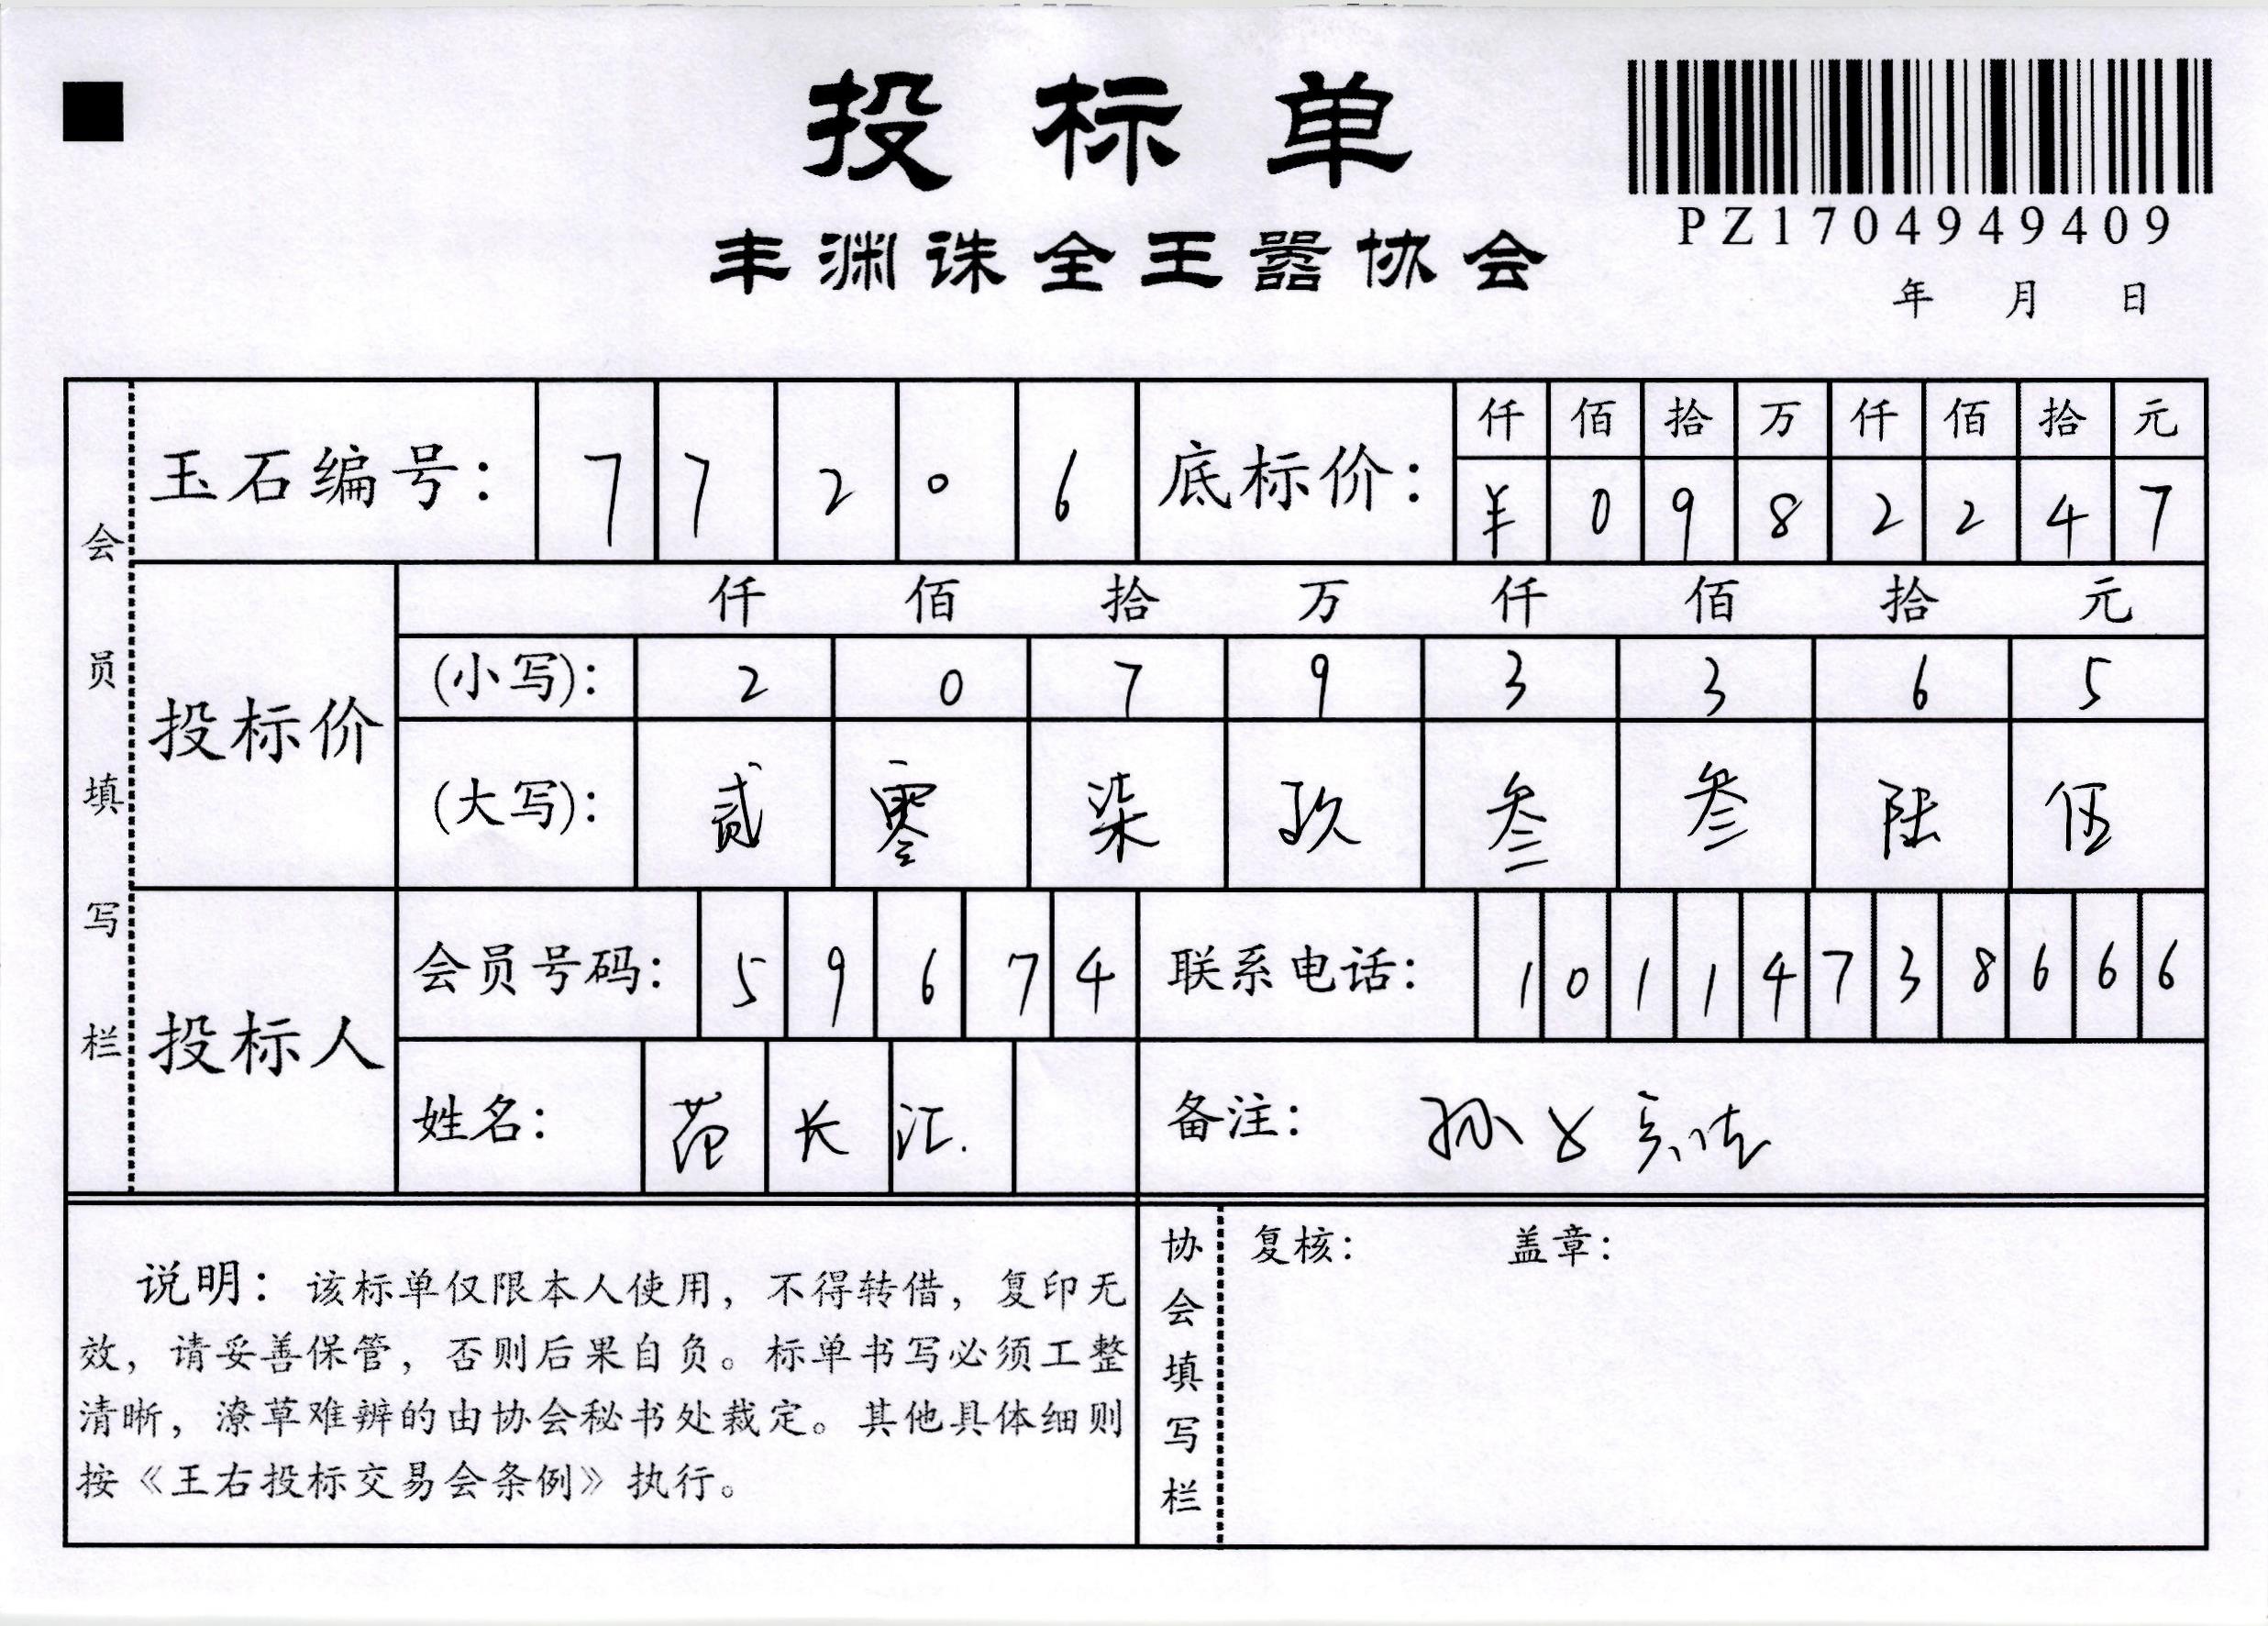 投标单
PZ1704949409
丰渊诛全王嚣协会
年 月 日
会员填写栏
玉石编号: 7 7 2 0 6
底标价: 仟 佰 拾 万 仟 佰 拾 元
¥ 0 9 8 2 2 4 7
投标价
仟 佰 拾 万 仟 佰 拾 元
(小写): 2 0 7 9 3 3 6 5
(大写): 贰 零 柒 玖 叁 叁 陆 伍
投标人
会员号码: 5 9 6 7 4
联系电话: 1 0 1 1 4 7 3 8 6 6 6
姓名: 范 长 江.
备注: 孙
说明: 该标单仅限本人使用, 不得转借, 复印无
效, 请妥善保管, 否则后果自负。标单书写必须工整
清晰, 潦草难辨的由协会秘书处裁定。其他具体细则
按《王右投标交易会条例》执行。
协会填写栏
复核: 盖章: